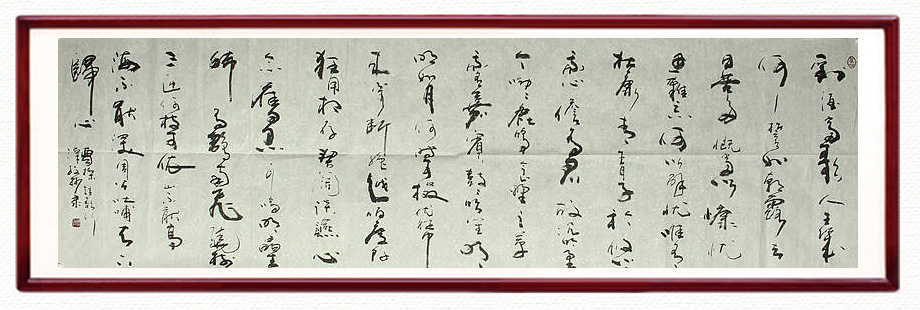 對酒當歌人生幾
何譬如朝露去
日苦多慨當以慷憂
思難忘何以解憂唯有
杜康青青子衿悠悠
我心但為君故沉吟至
今呦呦鹿鳴食野之苹
我有嘉賓鼓瑟吹笙明
明如月何時可掇憂從中
來不可斷絕越陌度阡
枉用相存契闊談讌心
念舊恩月明星
稀烏鵲南飛繞樹
三匝何枝可依山不厭高
海不厭深周公吐哺天下
歸心
曹操短歌行